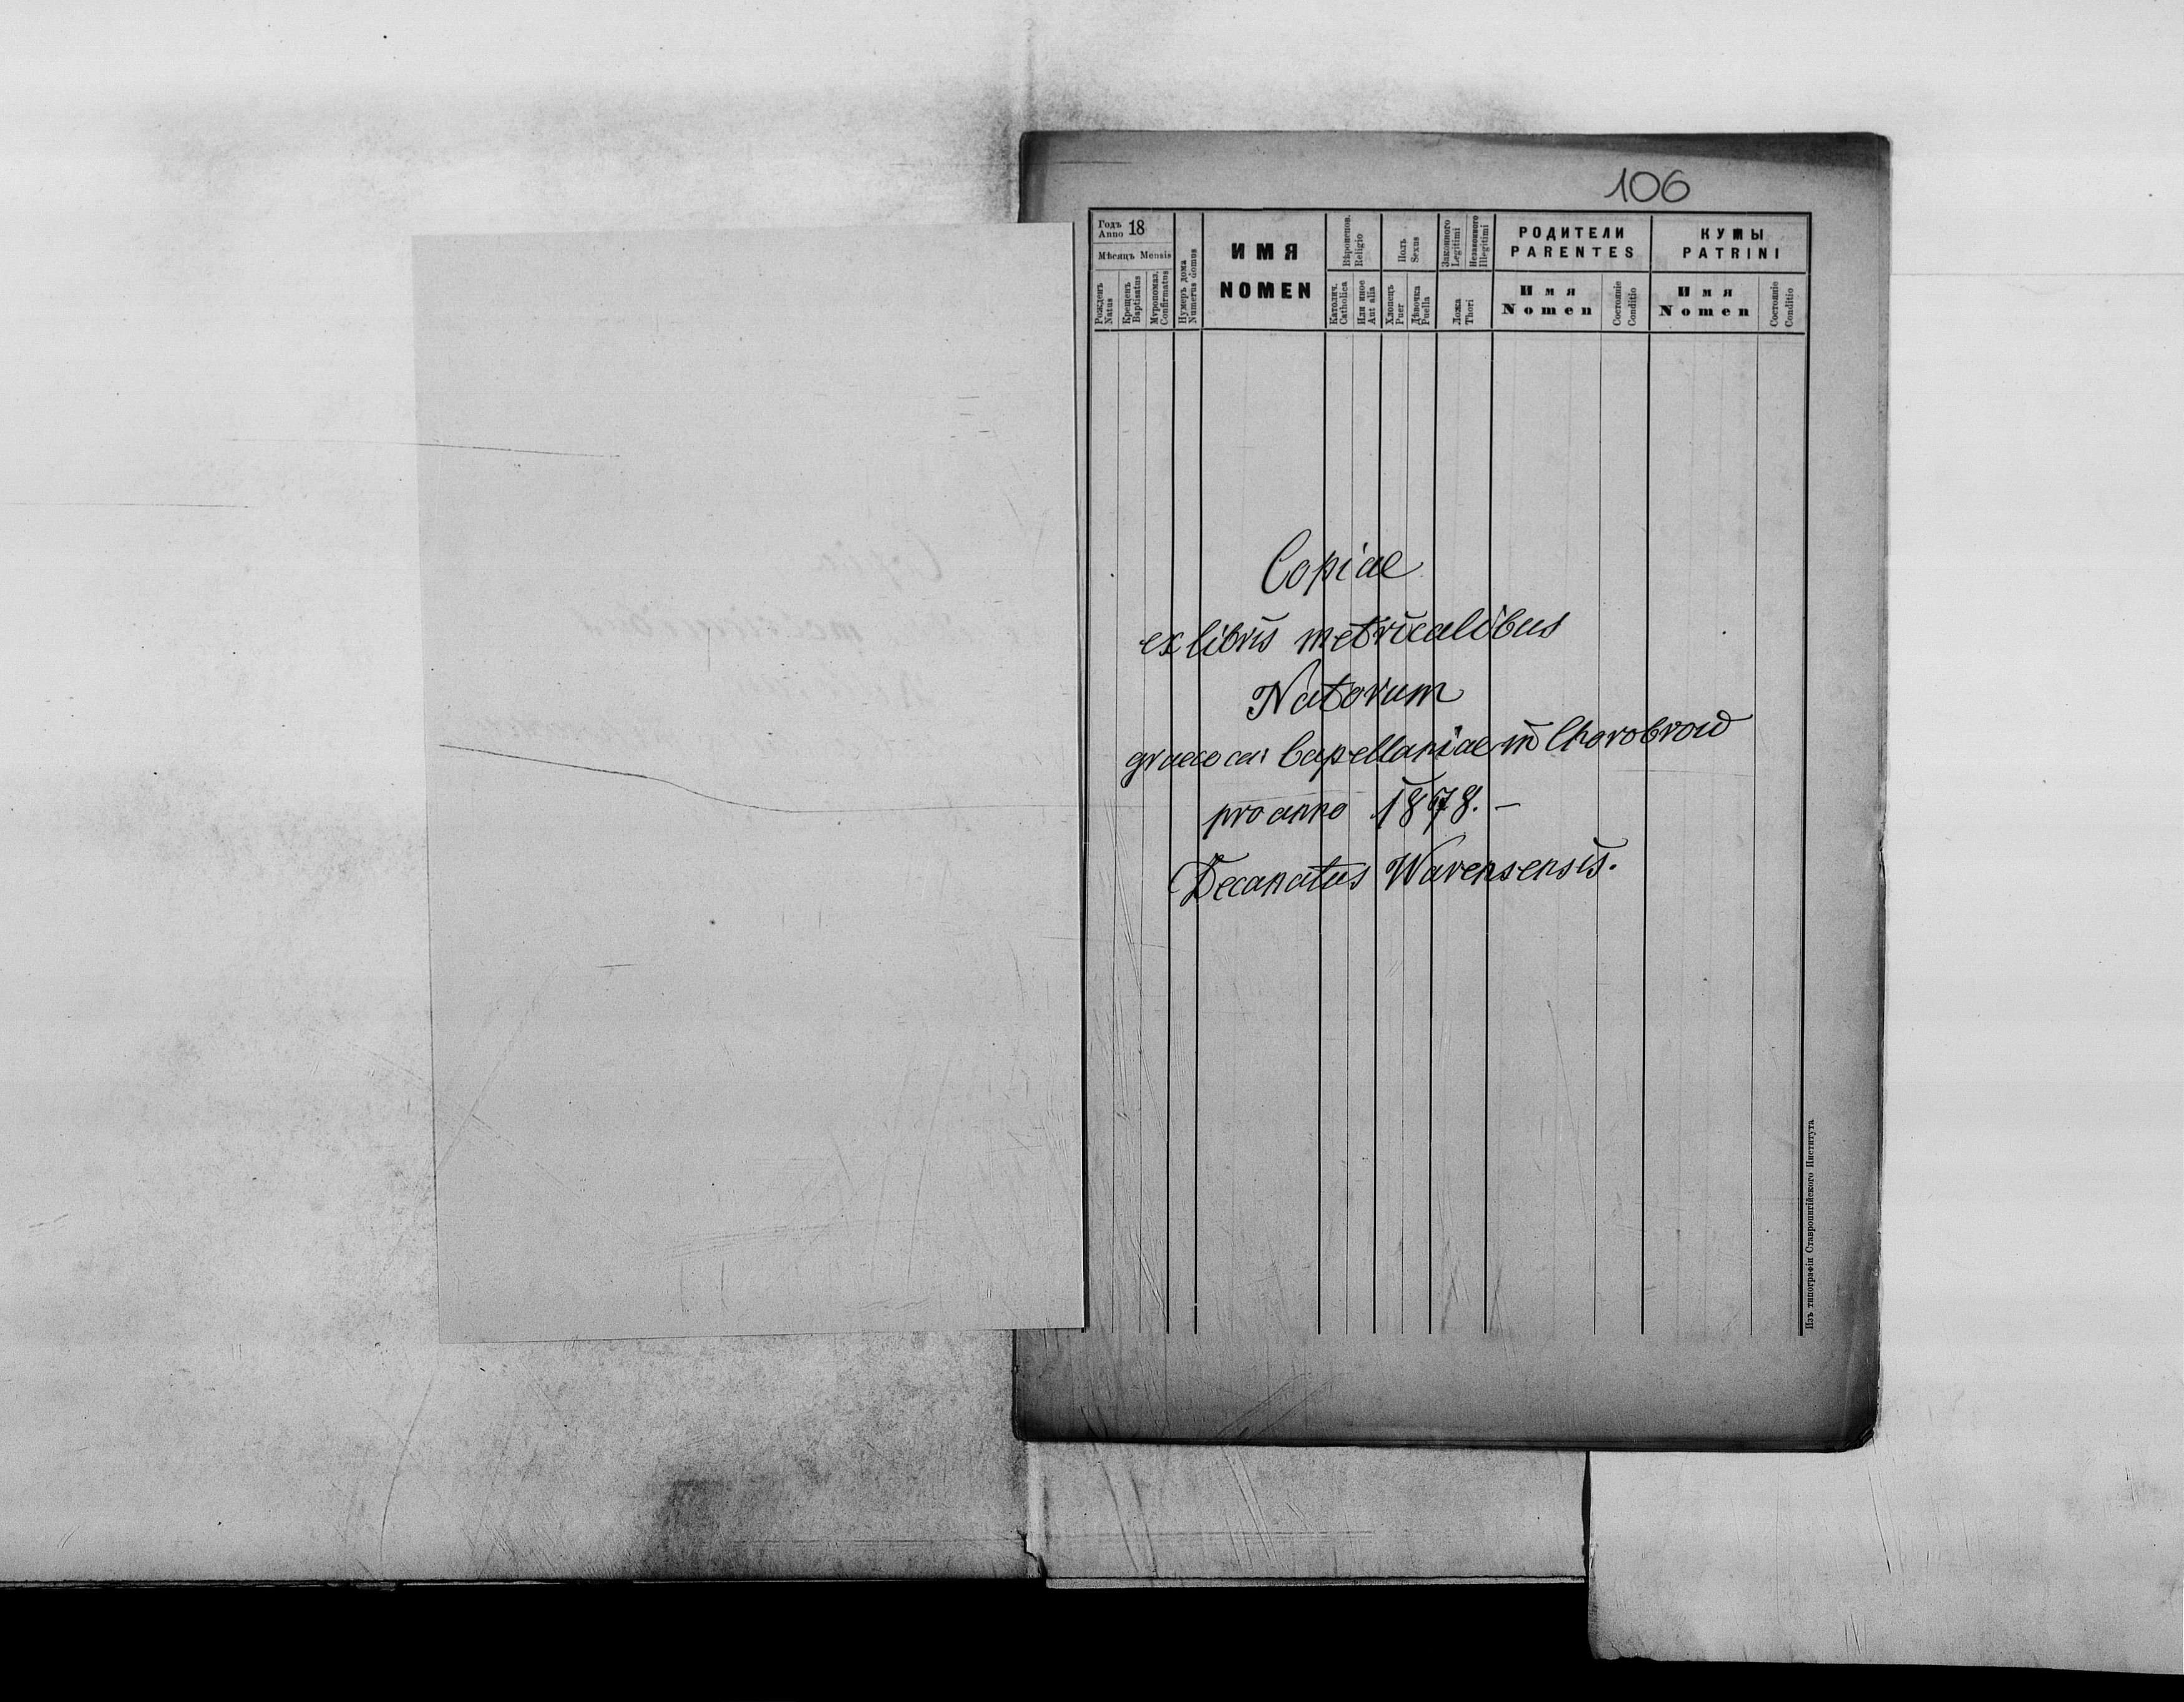 106
Годъ Anno 18
Мѣсяцъ Mensis
Рожденъ Natus
Крещенъ Baptisatus
Мѵропомаз. Confirmatus
Нумеръ дома Numerus domus
ИМЯ
NOMEN
Вѣроисповѣд. Religio
Католич. Catholica
Или иное Aut alia
Полъ Sexus
Хлопецъ Puer
Дѣвочка Puella
Законного Legitimi
Незаконного Illegitimi
Ложа Thori
РОДИТЕЛИ
PARENTES
Имя
Nomen
Состояніе Conditio
КУМЫ
PATRINI
Имя
Nomen
Состояніе Conditio
Copiae
ex libris metricalibus
Natorum
graeco cat Capellaniae in Chorobrow
pro anno 1878. –
Decanatus Warensensis.
Изъ типографіи Ставропигійского Института